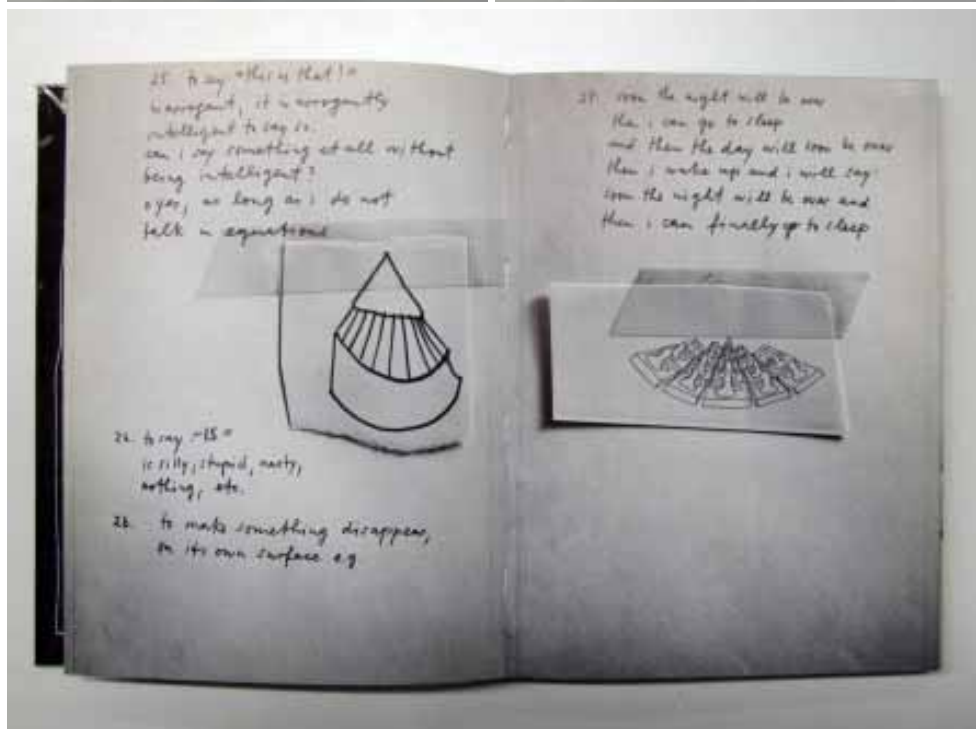 25. to say "this is that!"
is arrogant, it is arrogantly
intelligent to say so.
can i say something at all without
being intelligent?
o yes, as long as i do not
talk in equations
to say "is"
is silly, stupid, nasty,
nothing, etc.
to make something disappear,
on its own surface e.g
soon the night will be over
then i can go to sleep
and then the day will soon be over
then i wake up and i will say:
soon the night will be over and
then i can finally go to sleep